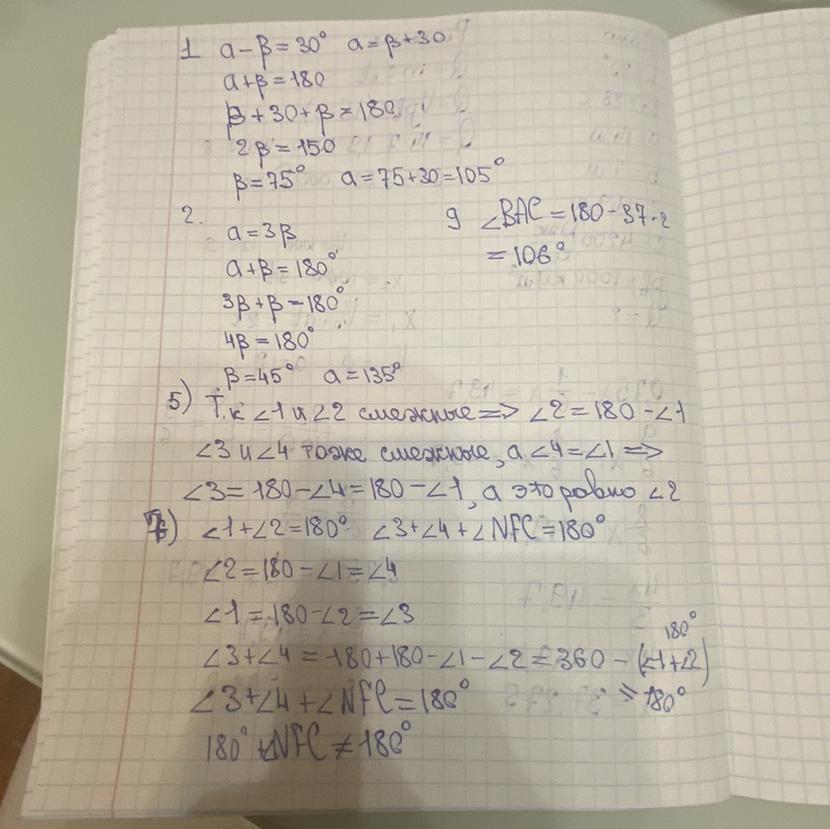 1 a-β=30° a=β+30
a+β=180
β+30+β=180
2β=150
β=75° a=75+30=105°
2.
a=3β
a+β=180°
3β+β=180°
4β=180°
β=45° a=135°
9 ∠BAC=180-37·2
=106°
5) Т.к ∠1 и ∠2 смежные=>∠2=180-∠1
∠3 и ∠4 тоже смежные, а ∠4=∠1=>
∠3=180-∠4=180-∠1, а это равно ∠2
7) ∠1+∠2=180° ∠3+∠4+∠NFC=180°
∠2=180-∠1=∠4
∠1=180-∠2=∠3
180°
∠3+∠4=180+180-∠1-∠2=360-(∠1+∠2)
∠3+∠4+∠NFC=180° =180°
180°+∠NFC≠180°